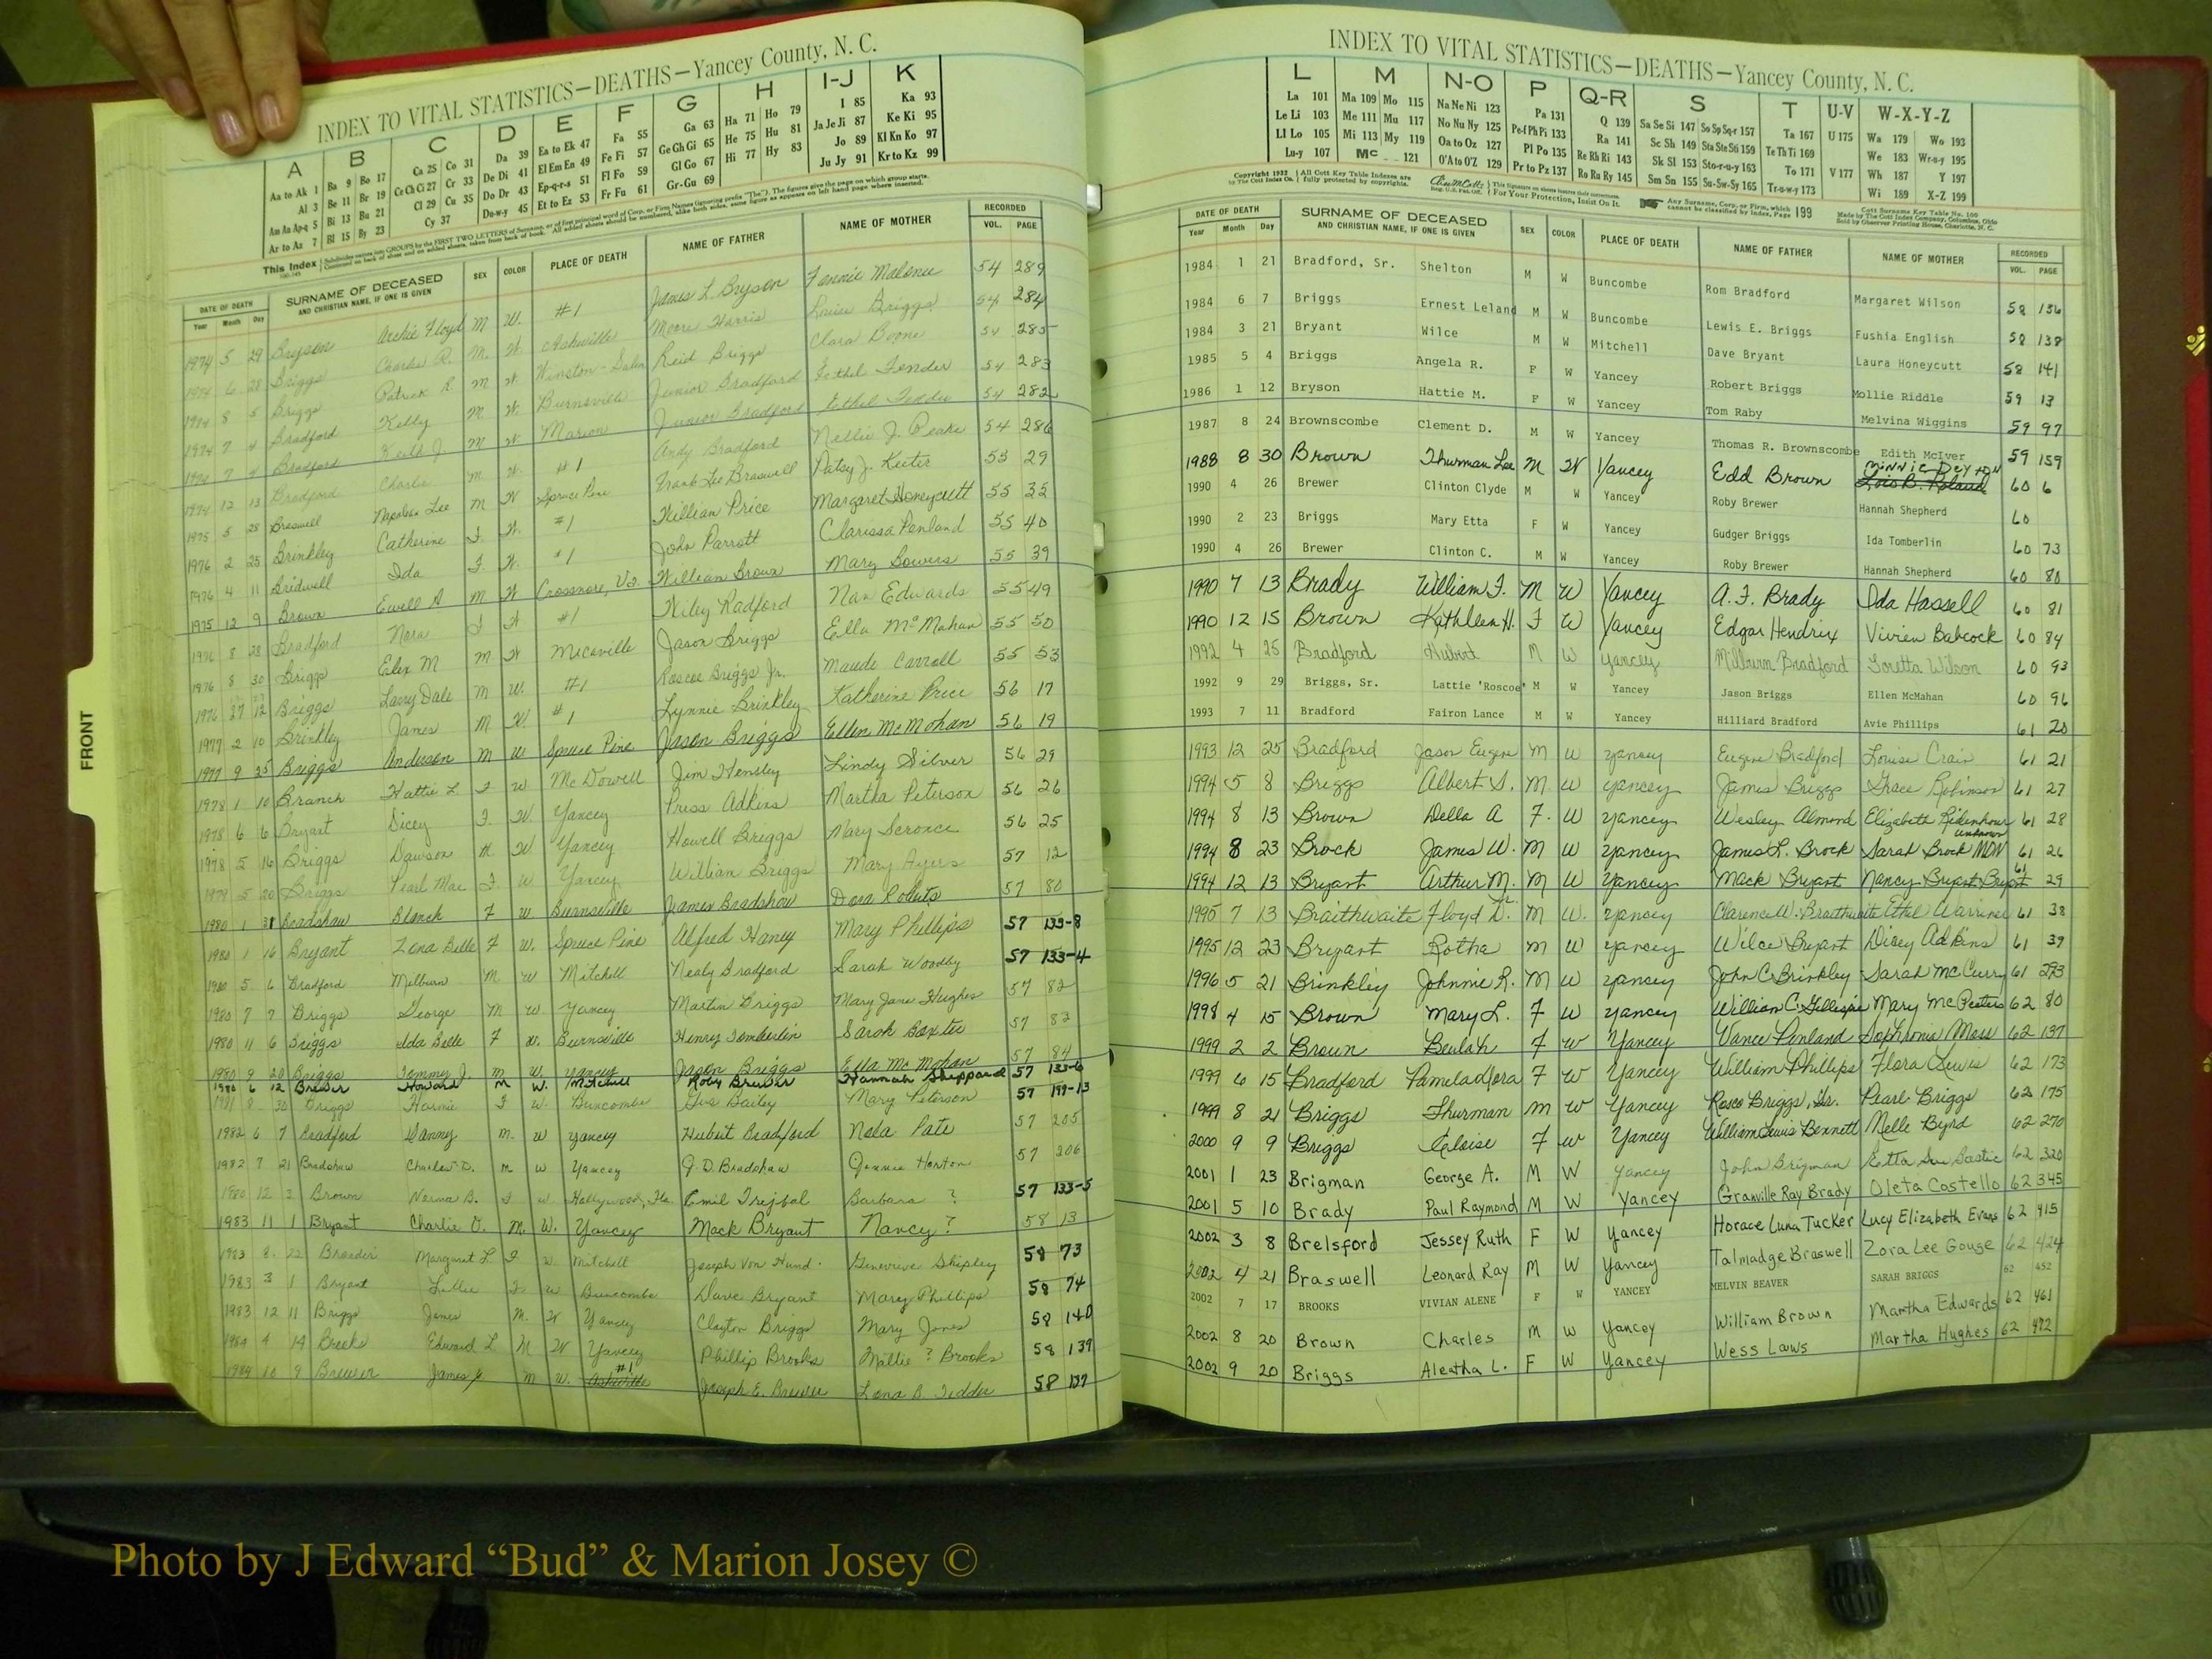 INDEX TO VITAL STATISTICS—DEATHS—Yancey County, N. C.
A B C D E F G H I-J K
Aa to Ak 1 Ba 9 Bo 17 Ca 25 Co 31 Da 39 Ea to Ek 47 Fa 55 Ga 63 Ha 71 Ho 79 I 85 Ka 93
Al 3 Be 11 Br 19 Ce Ch Ci 27 Cr 33 De Di 41 El Em En 49 Fe Fi 57 Ge Gh Gi 65 He 75 Hu 81 Ja Je Ji 87 Ke Ki 95
Am An Ap-q 5 Bi 13 Bu 21 Cl 29 Cu 35 Do Dr 43 Ep-q-r-s 51 Fl Fo 59 Gl Go 67 Hi 77 Hy 83 Jo 89 Kl Kn Ko 97
Ar to Az 7 Bl 15 By 23 Cy 37 Du-w-y 45 Et to Ez 53 Fr Fu 61 Gr-Gu 69 Ju Jy 91 Kr to Kz 99
DATE OF DEATH SURNAME OF DECEASED SEX COLOR PLACE OF DEATH NAME OF FATHER NAME OF MOTHER RECORDED
Year Month Day AND CHRISTIAN NAME, IF ONE IS GIVEN VOL. PAGE
1974 5 29 Bryson Archie Floyd M W. #1 James L Bryson Fannie 54 289
1974 6 28 Briggs Charlie R. M. W. Asheville Moore Harris Louise Briggs 54 284
1974 8 5 Briggs Patrick R. M W. Winston-Salem Reid Briggs Clara Boone 54 285
1974 7 4 Bradford Kelly M W. Burnsville Junior Bradford Ethel Tender 54 283
1974 7 4 Bradford Keith J M W. Marion Junior Bradford Ethel 54 282
1974 12 13 Bradford Charlie M W. #1 Andy Bradford Nellie J. 54 286
1975 5 28 Braswell Napoleon Lee M W Spruce Pine Frank Lee Braswell Patsy J. Keeter 53 29
1976 2 25 Brinkley Catherine F W. #1 William Price Margaret Honeycutt 55 35
1976 4 11 Bridwell Ida F. W. #1 John Parrott Clarissa Penland 55 40
1975 12 9 Brown Ewell A M W Crossnore, William Brown Mary Bowers 55 39
1976 8 28 Bradford Nora F W #1 Wiley Radford Nan Edwards 55 49
1976 8 30 Briggs Elex M M W Micaville Jason Briggs Ella McMahan 55 50
1976 12 Briggs Larry Dale M W. #1 Roscoe Briggs Jr. Maude Carroll 55 53
1977 2 10 Brinkley James M W. #1 Lynnie Brinkley Katherine Price 56 17
1977 9 25 Briggs Anderson M W Spruce Pine Jason Briggs Ellen McMahan 56 19
1978 1 10 Branch Hattie L. F W McDowell Jim Hensley Lindy Silver 56 29
1978 6 6 Bryant Dicey F. W. Yancey Press Adkins Martha Peterson 56 26
1978 5 16 Briggs Dawson M. W Yancey Howell Briggs Mary Scronce 56 25
1979 5 20 Briggs Pearl Mae F. W Yancey William Briggs Mary Ayers 57 12
1980 1 31 Bradshaw Blanch F W Burnsville James Bradshaw Dora Roberts 57 80
1980 1 16 Bryant Zona Belle F W. Spruce Pine Alfred Haney Mary Phillips 57 133-8
1980 5 6 Bradford Milburn M W Mitchell Nealy Bradford Sarah Woodby 57 133-4
1980 7 7 Briggs George M W Yancey Martin Briggs Mary Jane Hughes 57 82
1980 11 6 Briggs Ida Belle F W. Burnsville Henry Tomberlin Sarah Baxter 57 83
1980 9 20 Briggs Tommy J. M W. Yancey Jason Briggs Ella McMahan 57 84
1980 6 12 Brewer Howard M W. Mitchell Roby Brewer Hannah Sheppard 57 133-6
1981 8 30 Briggs F W. Buncombe Gus Bailey Mary Peterson 57 199-13
1982 6 7 Bradford Danny M. W Yancey Hubert Bradford Nola Pate 57 205
1982 7 21 Bradshaw Charles D. M W Yancey G. D. Bradshaw Jennie Horton 57 206
1980 12 3 Brown Nerma B. F W Hollywood, Fla. Emil Trejbal Barbara ? 57 133-5
1983 11 1 Bryant Charlie O. M. W. Yancey Mack Bryant Nancy ? 58 13
1983 8 22 Margaret L F W Mitchell Joseph Von Hund. Genevieve Shipley 58 73
1983 3 1 Bryant Lillie F W Buncombe Dave Bryant Mary Phillips 58 74
1983 12 11 Briggs Jones M. W Yancey Clayton Briggs Mary Jones 58 140
1984 4 14 Edward L M W Yancey Phillip Brooks Mattie ? Brooks 58 139
1984 10 9 Brewer James M W. #1 Asheville Joseph E. Brewer Lona B. Tedder 58 137
FRONT
INDEX TO VITAL STATISTICS—DEATHS—Yancey County, N. C.
L M N-O P Q-R S T U-V W-X-Y-Z
La 101 Ma 109 Mo 115 Na Ne Ni 123 Pa 131 Q 139 Sa Se Si 147 So Sp Sq-r 157 Ta 167 U 175 Wa 179 Wo 193
Le Li 103 Me 111 Mu 117 No Nu Ny 125 Pe-f Ph Pi 133 Ra 141 Sc Sh 149 Sta Ste Sti 159 Te Th Ti 169 We 183 Wr-u-y 195
Ll Lo 105 Mi 113 My 119 Oa to Oz 127 Pl Po 135 Re Rh Ri 143 Sk Sl 153 Sto-r-u-y 163 To 171 V 177 Wh 187 Y 197
Lu-y 107 Mc 121 O'A to O'Z 129 Pr to Pz 137 Ro Ru Ry 145 Sm Sn 155 Su-Sw-Sy 165 Tr-u-w-y 173 Wi 189 X-Z 199
DATE OF DEATH SURNAME OF DECEASED SEX COLOR PLACE OF DEATH NAME OF FATHER NAME OF MOTHER RECORDED
Year Month Day AND CHRISTIAN NAME, IF ONE IS GIVEN VOL. PAGE
1984 1 21 Bradford, Sr. Shelton M W Buncombe Rom Bradford Margaret Wilson 58 136
1984 6 7 Briggs Ernest Leland M W Buncombe Lewis E. Briggs Fushia English 58 138
1984 3 21 Bryant Wilce M W Mitchell Dave Bryant Laura Honeycutt 58 141
1985 5 4 Briggs Angela R. F W Yancey Robert Briggs Mollie Riddle 59 13
1986 1 12 Bryson Hattie M. F W Yancey Tom Raby Melvina Wiggins 59 97
1987 8 24 Brownscombe Clement D. M W Yancey Thomas R. Brownscombe Edith McIver 59 159
1988 8 30 Brown Thurman Lee M W Yancey Edd Brown Minnie Deyton Lois B. Roland 60 6
1990 4 26 Brewer Clinton Clyde M W Yancey Roby Brewer Hannah Shepherd 60
1990 2 23 Briggs Mary Etta F W Yancey Gudger Briggs Ida Tomberlin 60 73
1990 4 26 Brewer Clinton C. M W Yancey Roby Brewer Hannah Shepherd 60 80
1990 7 13 Brady William F. M W Yancey A. F. Brady Ida Hassell 60 81
1990 12 15 Brown Kathleen H. F W Yancey Edgar Hendrix Vivien Babcock 60 84
1992 4 25 Bradford Hubert M W Yancey Milburn Bradford Loretta Wilson 60 93
1992 9 29 Briggs, Sr. Lattie 'Roscoe' M W Yancey Jason Briggs Ellen McMahan 60 96
1993 7 11 Bradford Fairon Lance M W Yancey Hilliard Bradford Avie Phillips 61 20
1993 12 25 Bradford Jason Eugene M W Yancey Eugene Bradford Louise Crain 61 21
1994 5 8 Briggs Albert S. M W Yancey James Briggs Grace Robinson 61 27
1994 8 13 Brown Della A F. W Yancey Wesley Almond Elizabeth Ridenhour 61 28
1994 8 23 Brock James W. M W Yancey James L. Brock Sarah Brock MDN unknown 61 26
1994 12 13 Bryant Arthur M. M W Yancey Mack Bryant Nancy Bryant Bryant 61 29
1995 7 13 Braithwaite Floyd D. M W. Yancey Clarence W. Braithwaite Ethel Warriner 61 38
1995 12 23 Bryant Rotha M W Yancey Wilce Bryant Dicey Adkins 61 39
1996 5 21 Brinkley Johnnie R. M W Yancey John C. Brinkley Sarah McCurry 61 293
1998 4 15 Brown Mary L. F W Yancey William C. Gillespie Mary McPeters 62 80
1999 2 2 Brown Beulah F W Yancey Vance Penland Sophronia Moss 62 137
1999 6 15 Bradford Pamela dora F W Yancey William Phillips Flora Lewis 62 173
1999 8 21 Briggs Thurman M W Yancey Rosco Briggs, Sr. Pearl Briggs 62 175
2000 9 9 Briggs Eloise F W Yancey William Lewis Bennett Melle Byrd 62 270
2001 1 23 Brigman George A. M W Yancey John Brigman Etta Sue 62 320
2001 5 10 Brady Paul Raymond M W Yancey Granville Ray Brady Oleta Costello 62 345
2002 3 8 Brelsford Jessey Ruth F W Yancey Horace Luna Tucker Lucy Elizabeth Evans 62 415
2002 4 21 Braswell Leonard Ray M W Yancey Talmadge Braswell Zora Lee Gouge 62 424
2002 7 17 BROOKS VIVIAN ALENE F W YANCEY MELVIN BEAVER SARAH BRIGGS 62 452
2002 8 20 Brown Charles M W Yancey William Brown Martha Edwards 62 461
2002 9 20 Briggs Aleatha L. F W Yancey Wess Laws Martha Hughes 62 472
Photo by J Edward “Bud” & Marion Josey ©